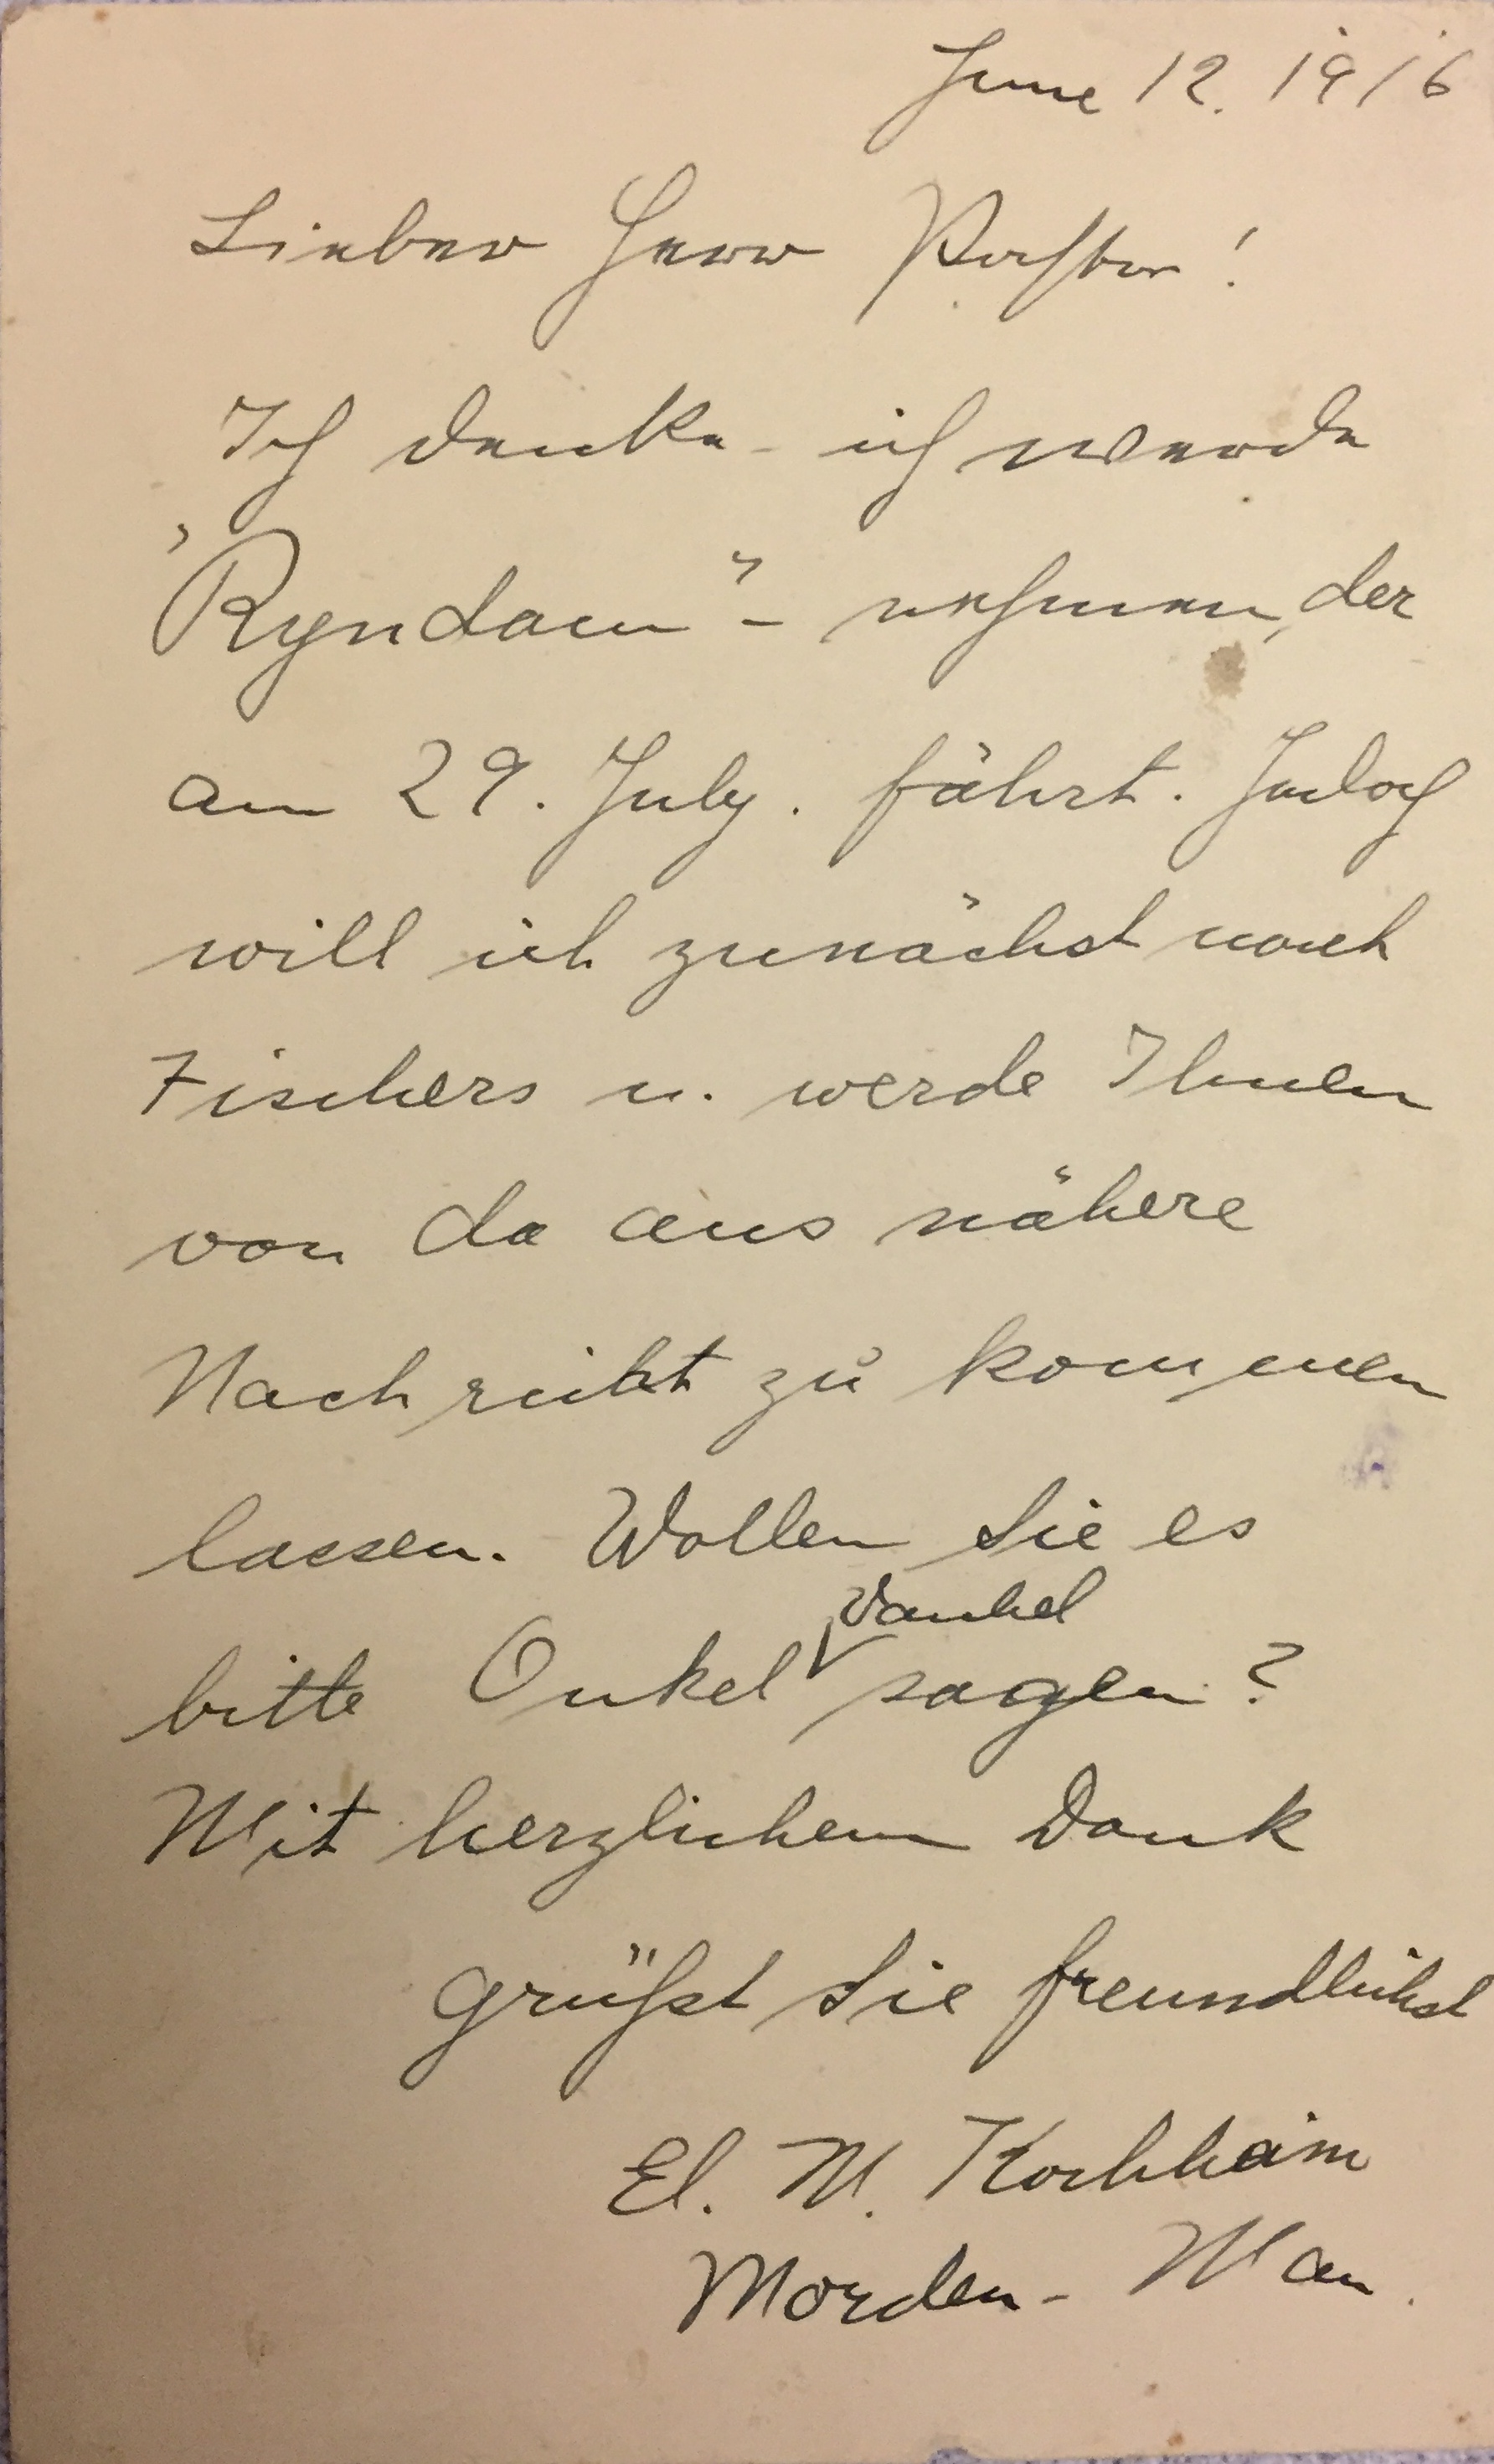 June 12. 1916
Lieber Herr Pastor!
Ich denke - ich werde
"Ryndam" - nehmen, der
am 29. July. fährt. Jedoch
will ich zunächst nach
Fischers u. werde Ihnen
von da aus nähere
Nachricht zu kommen
lassen. Wollen Sie es
bitte Onkel sagen?
Mit herzlichem Dank
grüßst Sie freundlichst
El. M. Kochheim
Morden - Man.